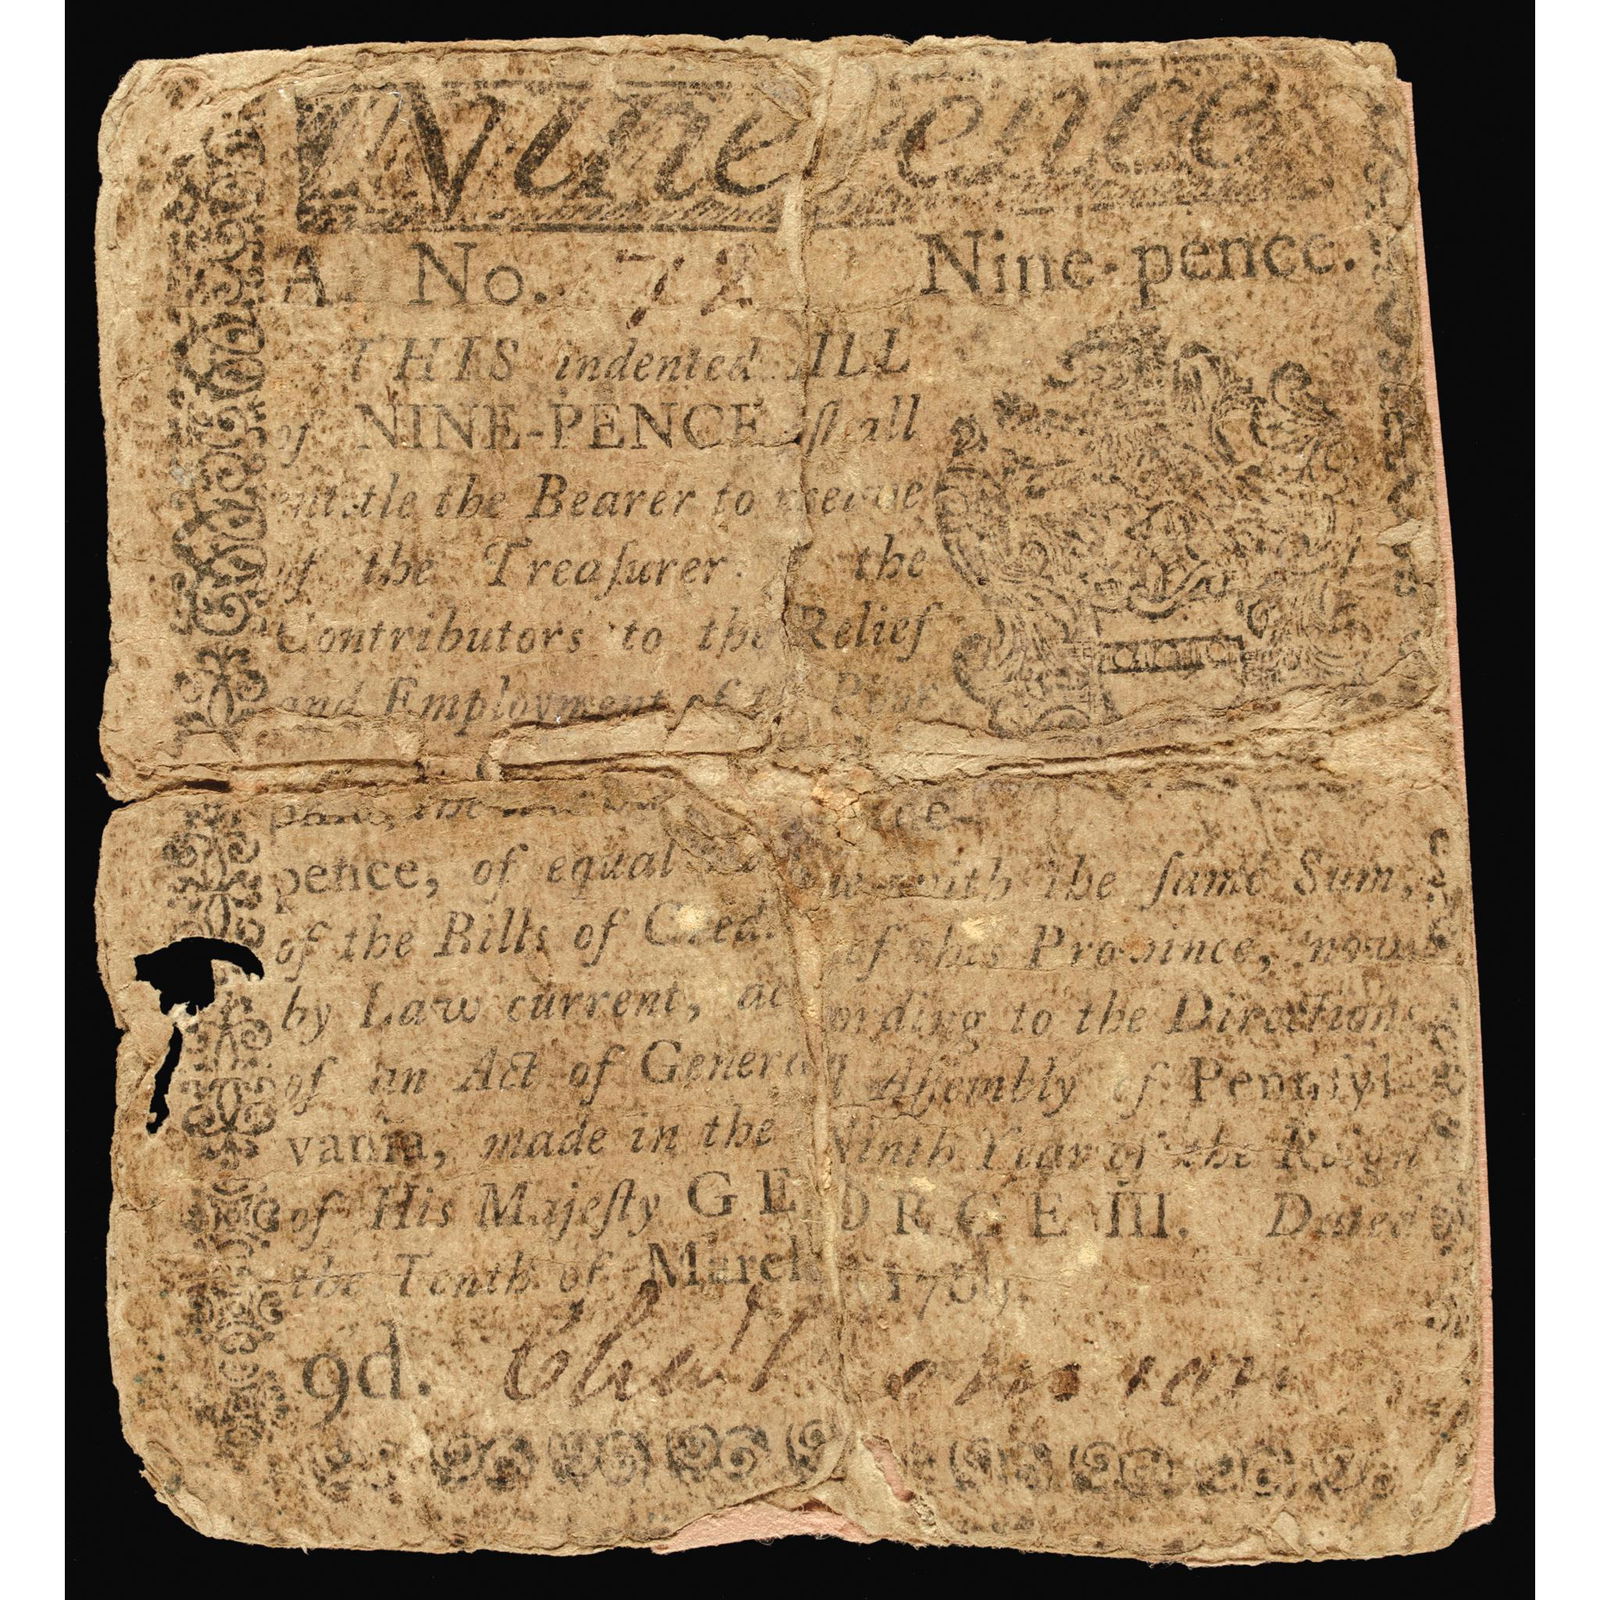 Nine ence
A No. 72 Nine-pence.
THIS indented ILL
of NINE-PENCE ſhall
entitle the Bearer to receive
of the Treaſurer the
Contributors to the Relief
and Employment of the Poor
pence, of equal with the ſame Sum,
of the Bills of Credit of this Province, now
by Law current, according to the Directions
of an Act of General Aſſembly of Pennſyl-
vania, made in the Ninth Year of the Reign
of His Majeſty GEORGE III. Dated
the Tenth of March 1769.
9d.